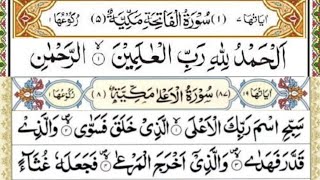 اٰيَاتُهَا ٧ (١) سُوْرَةُ الْفَاتِحَةِ مَكِّيَّةٌ (٥) رُكُوْعُهَا ١
اَلْحَمْدُ لِلّٰهِ رَبِّ الْعٰلَمِيْنَ ۙ١ الرَّحْمٰنِ
اٰيَاتُهَا ١٩ (٨٧) سُوْرَةُ الْاَعْلٰى مَكِّيَّةٌ (٨) رُكُوْعُهَا ١
سَبِّحِ اسْمَ رَبِّكَ الْاَعْلَى ۙ١ الَّذِيْ خَلَقَ فَسَوّٰى ۙ٢ وَالَّذِيْ
قَدَّرَ فَهَدٰى ۙ٣ وَالَّذِيْٓ اَخْرَجَ الْمَرْعٰى ۙ٤ فَجَعَلَهٗ غُثَآءً